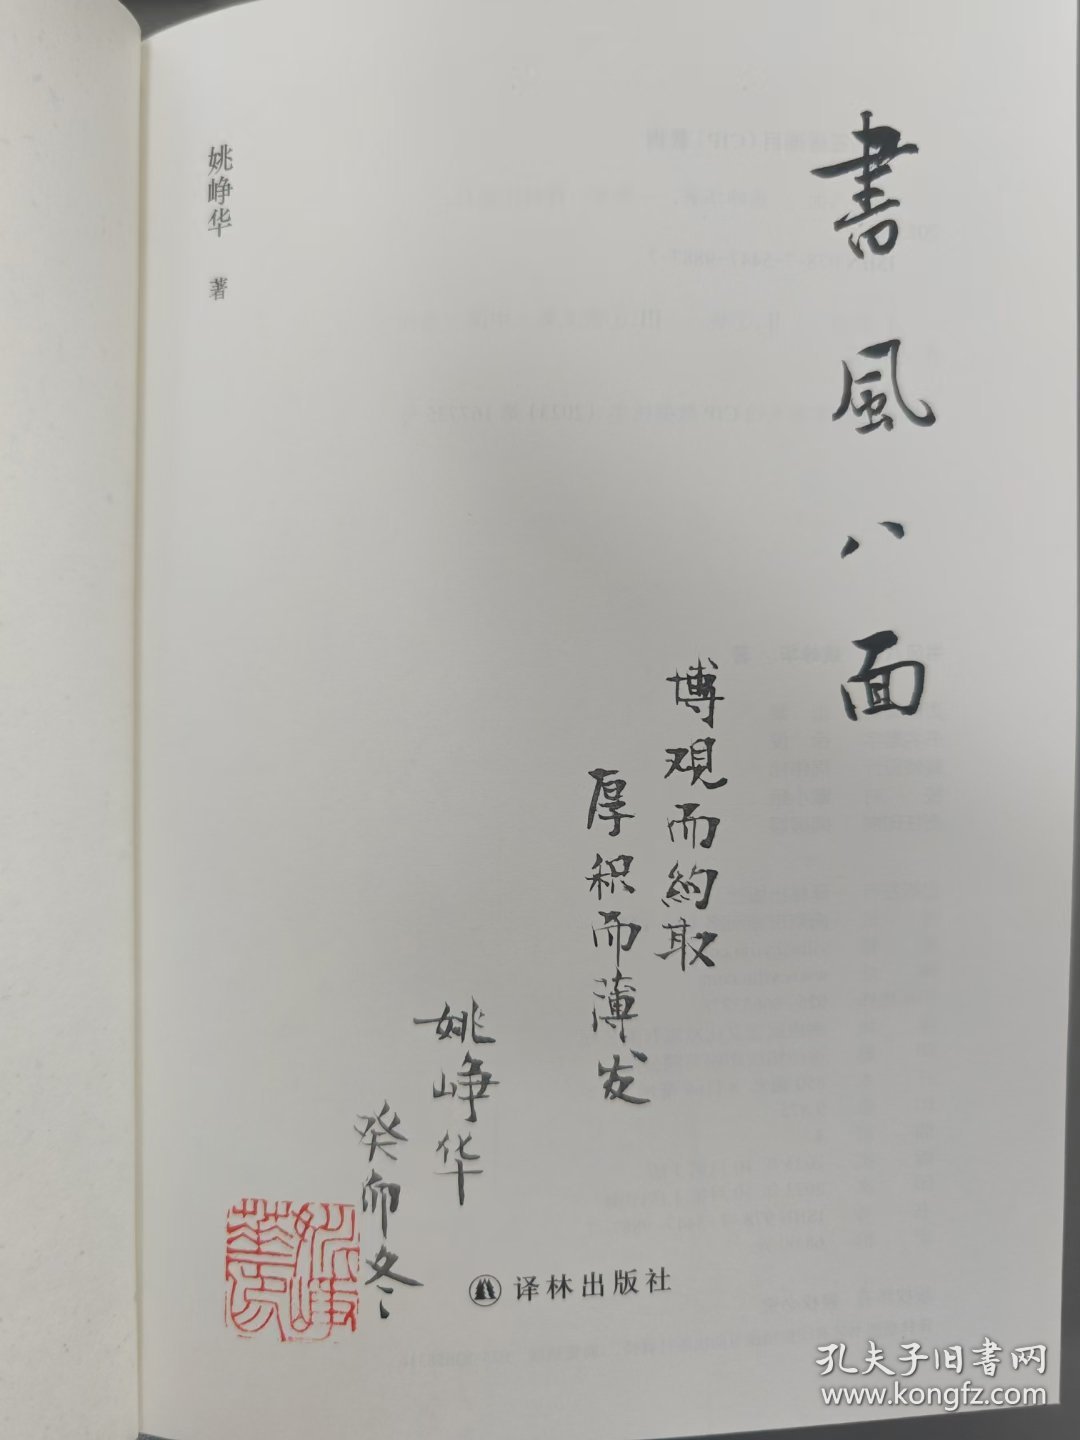 書風八面
博观而約取
厚积而薄发
姚峥华
癸卯冬
姚峥华 著
姚峥华印
译林出版社
孔夫子旧書网
www.kongfz.com